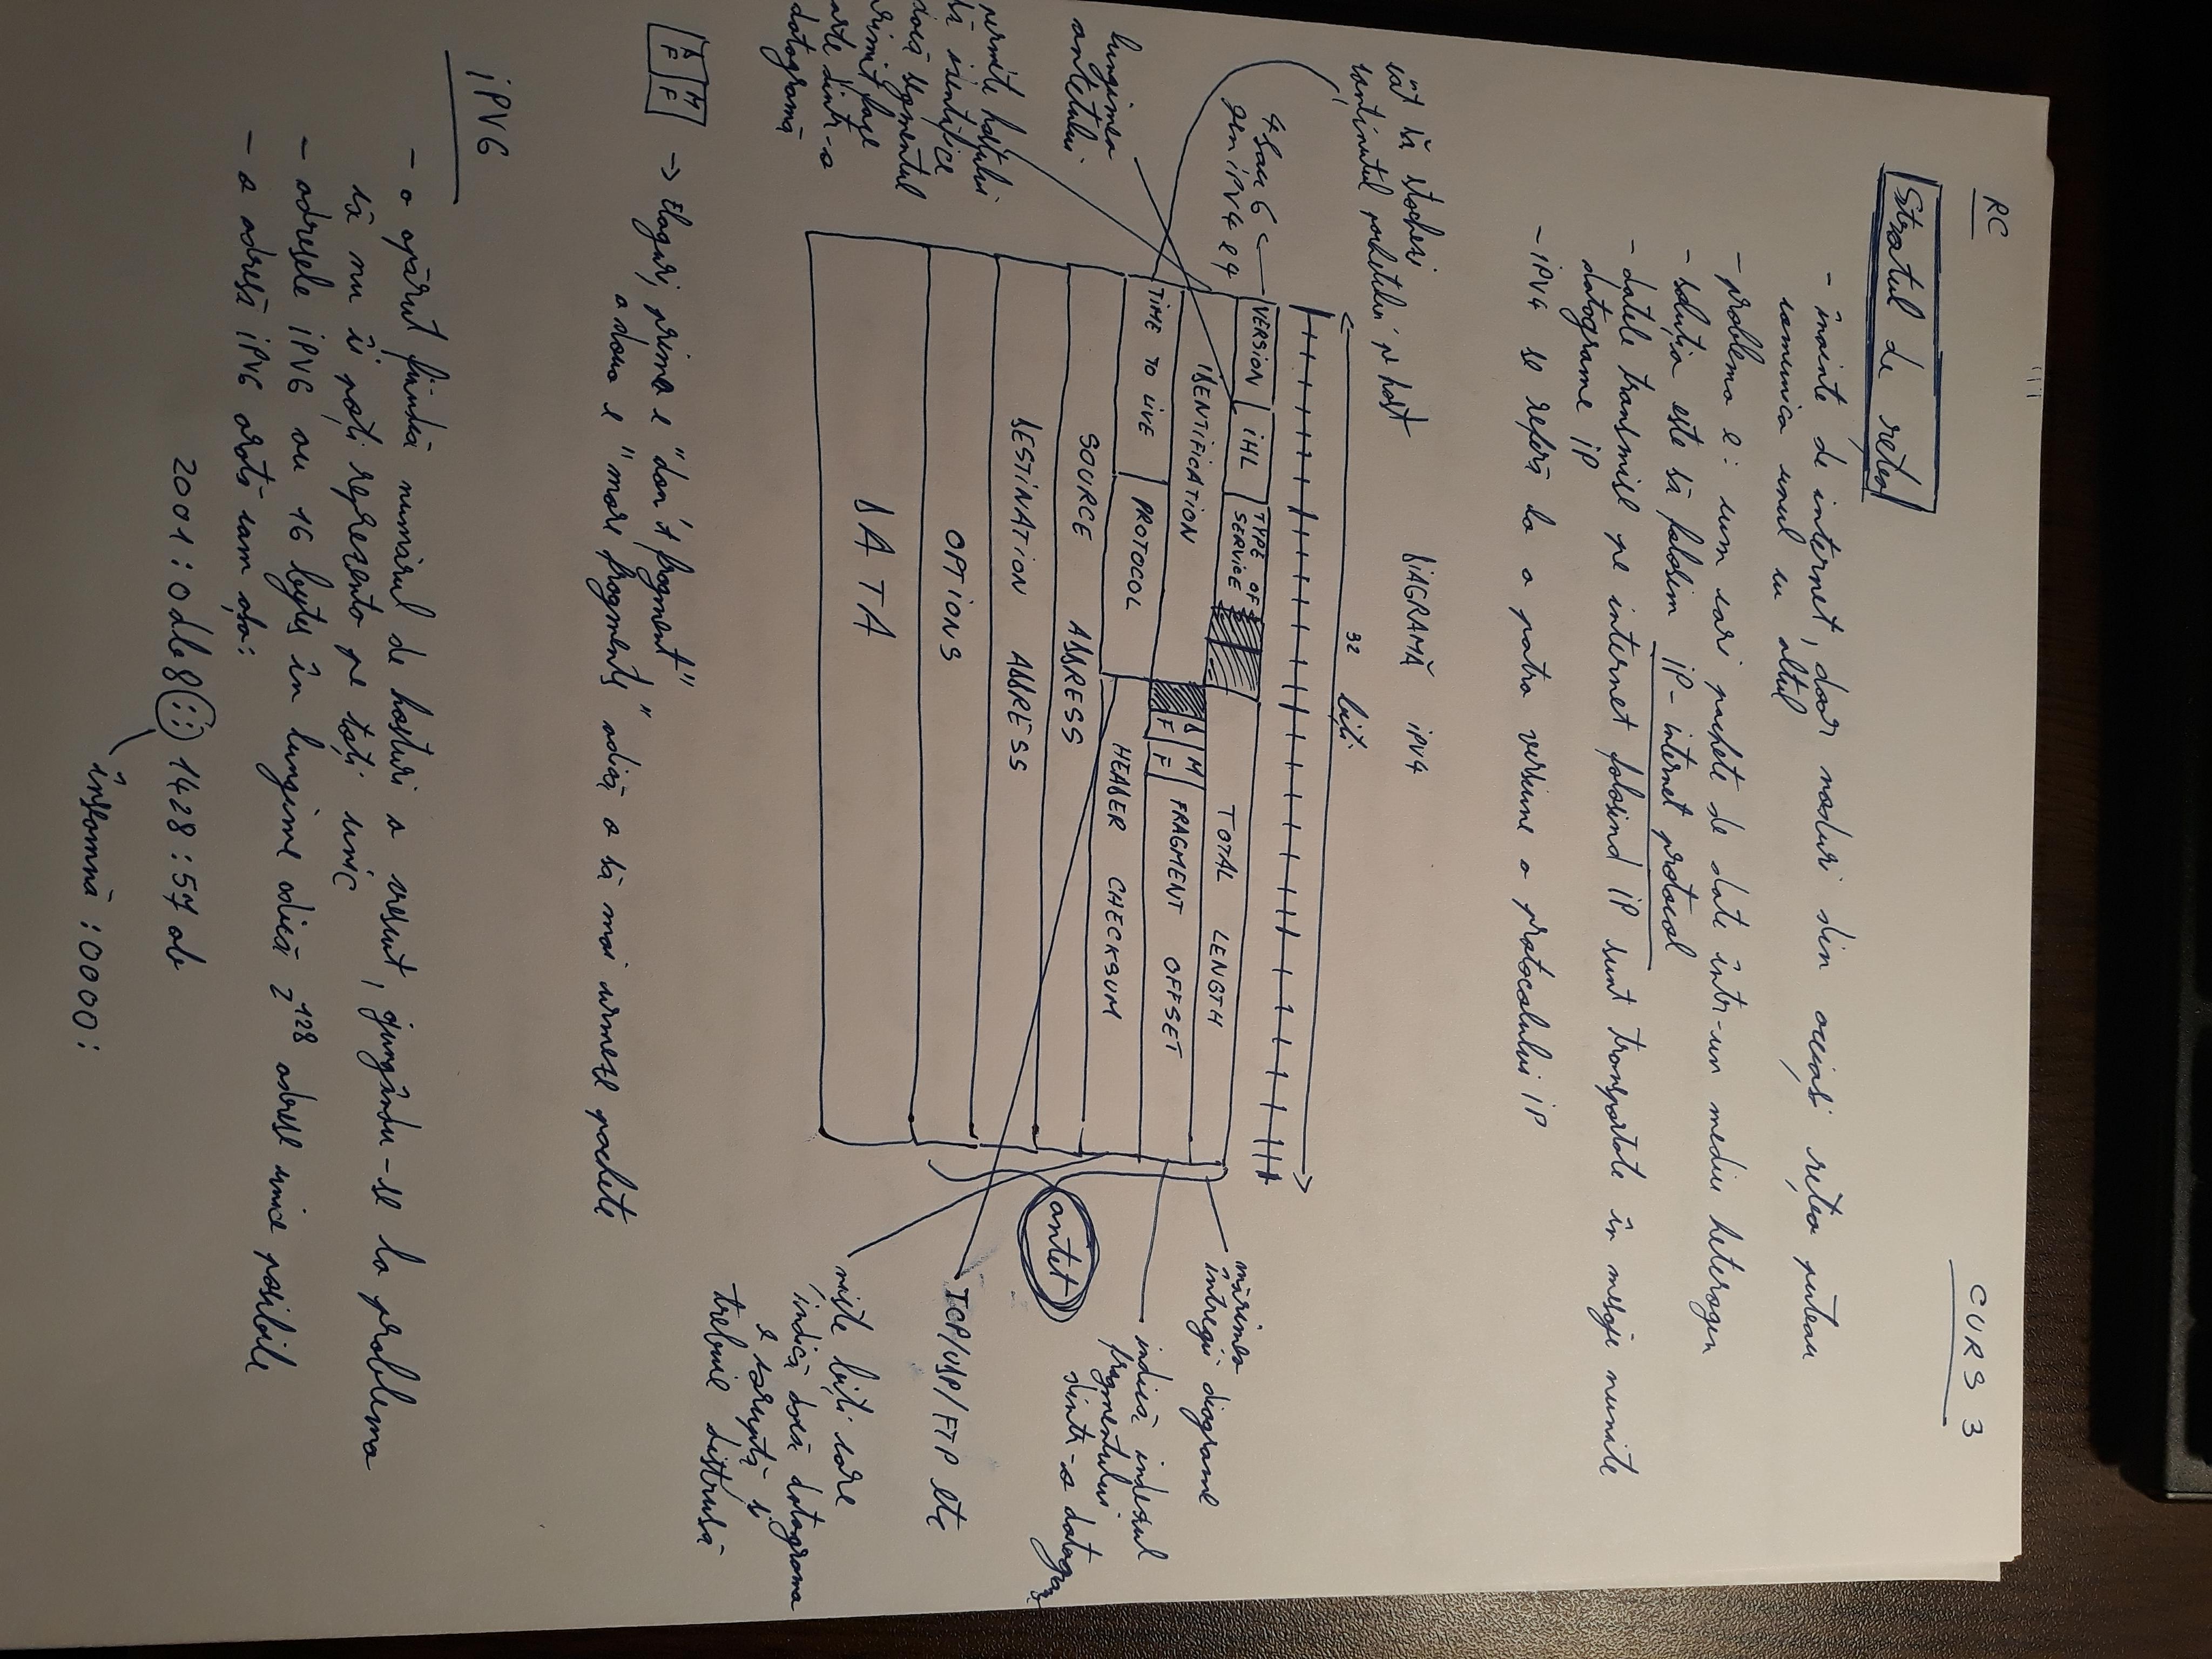 RC
CURS 3
Stratul de rețea
- înainte de internet, doar noduri din aceiași rețea puteau
comunica unul cu altul
- problema e: cum cari pachete de date într-un mediu heterogen
- soluția este să folosim IP - internet protocol
- datele transmise pe internet folosind IP sunt transportate în mesaje numite
datograme IP
- IPV4 se referă la a patra versiune a protocolului IP
cât să stochezi
conținutul pachetului pe host
DIAGRAMĂ IPV4
32 biți
4 sau 6
gen IPV4 e 4
VERSION IHL TYPE OF SERVICE TOTAL LENGTH
IDENTIFICATION DF MF FRAGMENT OFFSET
TIME TO LIVE PROTOCOL HEADER CHECKSUM
SOURCE ADDRESS
DESTINATION ADDRESS
OPTIONS
DATA
mărimea
întregii diagrame
indică indexul
fragmentului
dintr-o datogramă
antet
TCP/UDP/FTP etc
niște biți care
indică dacă datograma
e coruptă și
trebuie distrusă
lungimea
antetului
permite hostului
să identifice
dacă segmentul
primit face
parte dintr-o
datogramă
DF MF -> Flaguri, prima e "don't fragment"
a doua e "more fragments" adică o să mai urmeze pachete
IPV6
- a apărut fiindcă numărul de hosturi a crescut, jungându-se la problema
că nu îi poți reprezenta pe toți unic
- adresele IPV6 au 16 bytes în lungime adică 2^128 adrese unice posibile
- o adresă IPV6 arată cam așa:
2001:0db8::1428:57ab
înseamnă :0000: